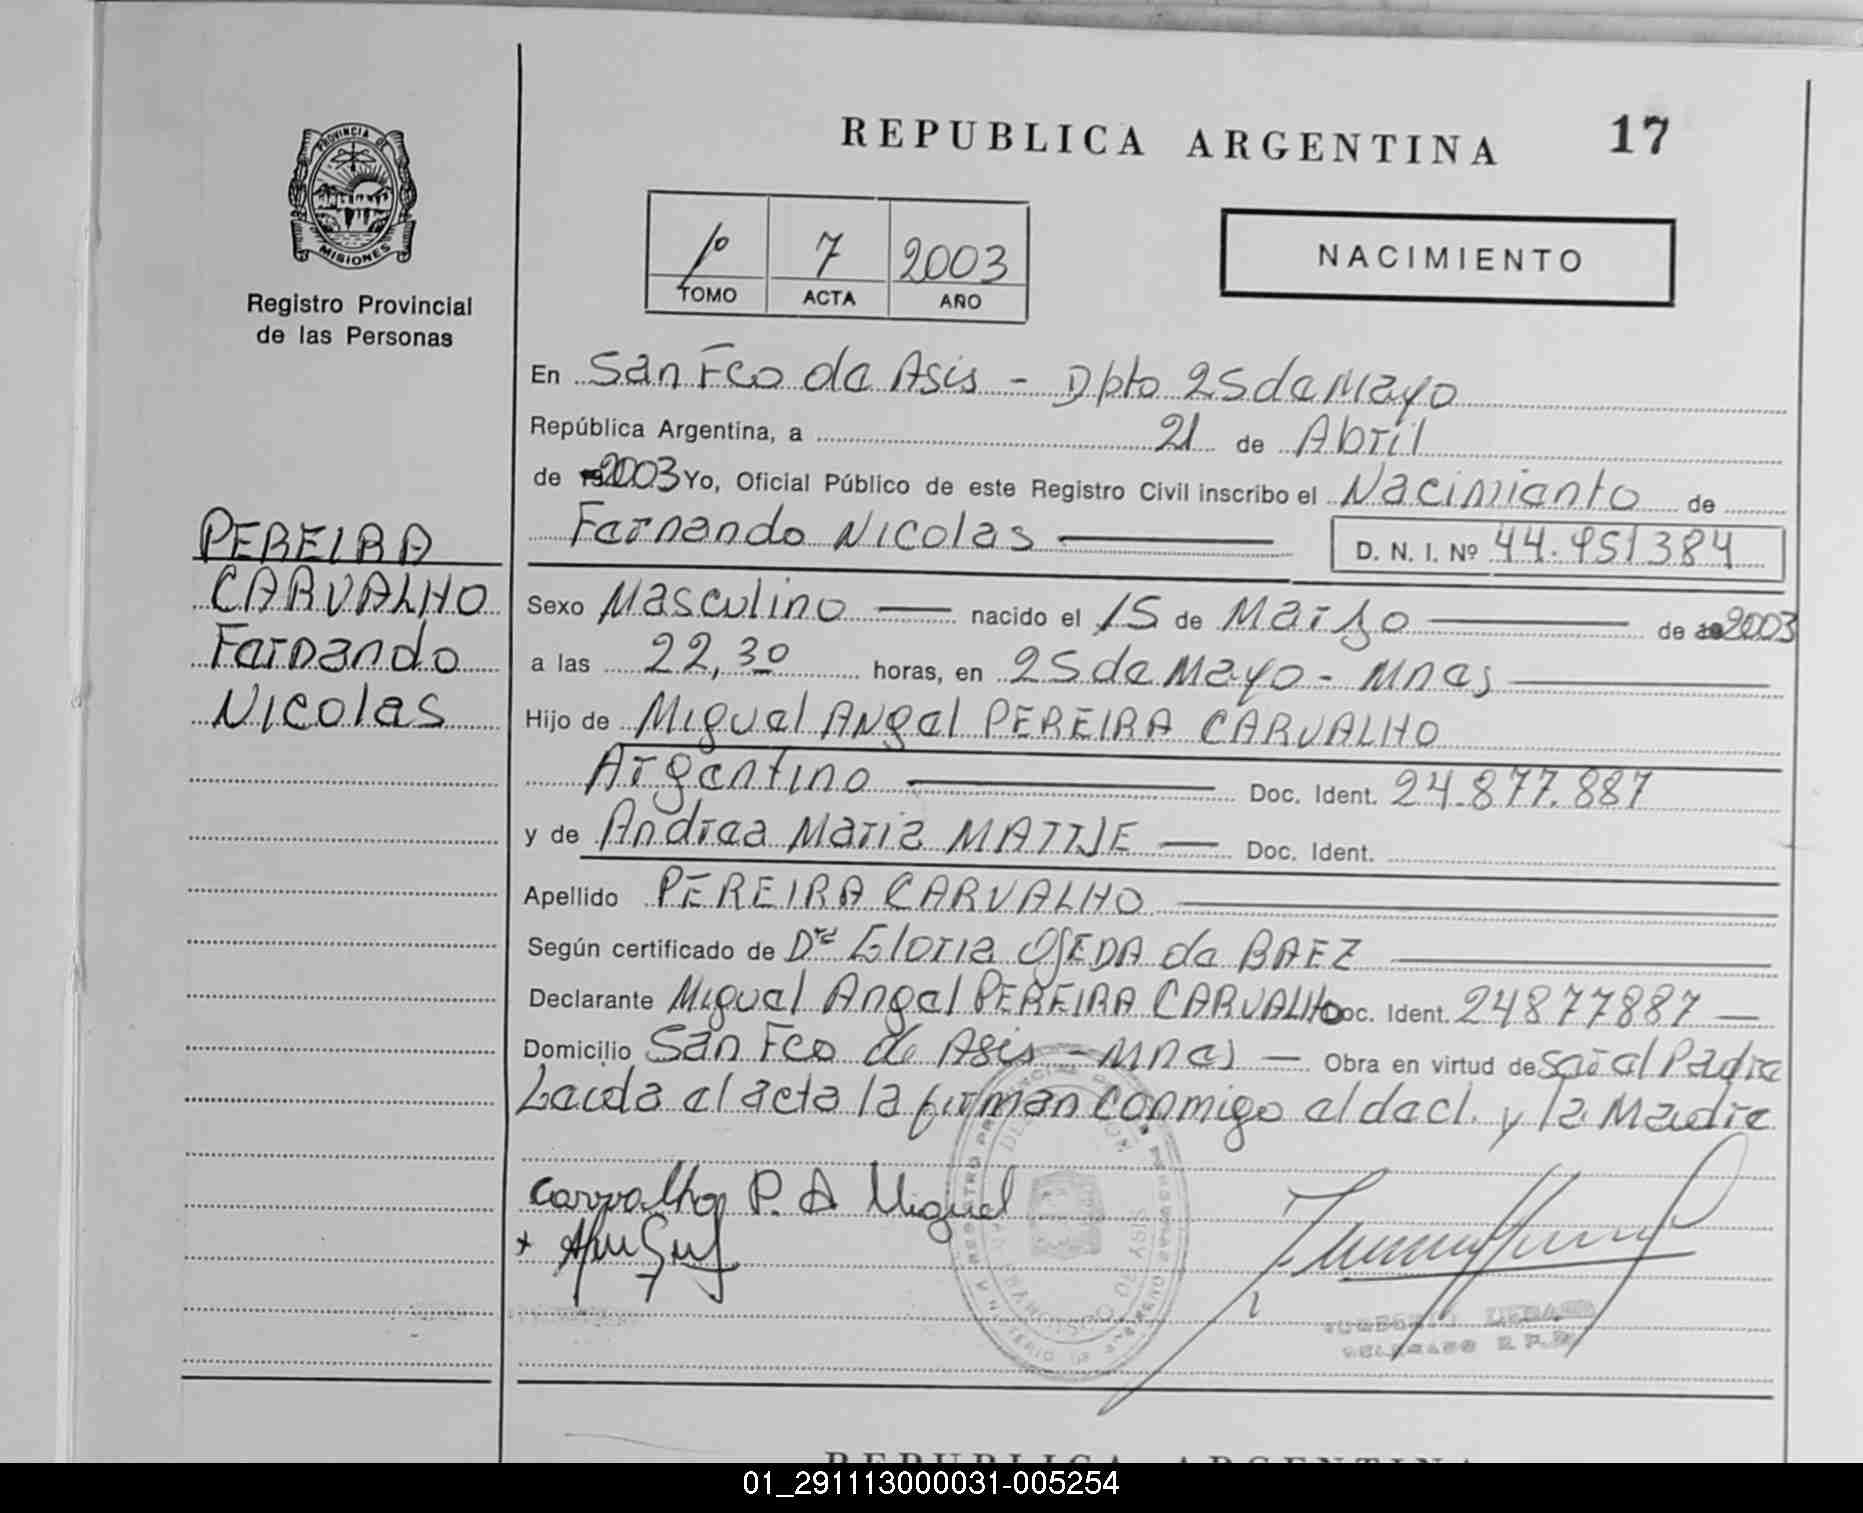 REPUBLICA ARGENTINA 17
PROVINCIA DE MISIONES
Registro Provincial
de las Personas
1º 7 2003
TOMO ACTA AÑO
NACIMIENTO
En San Fco de Asis - Dpto 25 de Mayo
República Argentina, a 21 de Abril
de 2003 Yo, Oficial Público de este Registro Civil inscribo el Nacimiento de
Fernando Nicolas D. N. I. Nº 44.951384
PEREIRA
CARVALHO
Fernando
Nicolas
Sexo Masculino nacido el 15 de Marzo de 2003
a las 22,30 horas, en 25 de Mayo - Mnes
Hijo de Miguel Angel PEREIRA CARVALHO
Argentino Doc. Ident. 24.877.887
y de Andrea Maria MATTJE Doc. Ident.
Apellido PEREIRA CARVALHO
Según certificado de Drª Gloria OJEDA de BAEZ
Declarante Miguel Angel PEREIRA CARVALHO Doc. Ident. 24877887
Domicilio San Fco de Asis - Mnes - Obra en virtud de Ser el Padre
Leida el acta la firman conmigo el decl. y la Madre
Carvalho P. A Miguel
REPUBLICA ARGENTINA
01_291113000031-005254